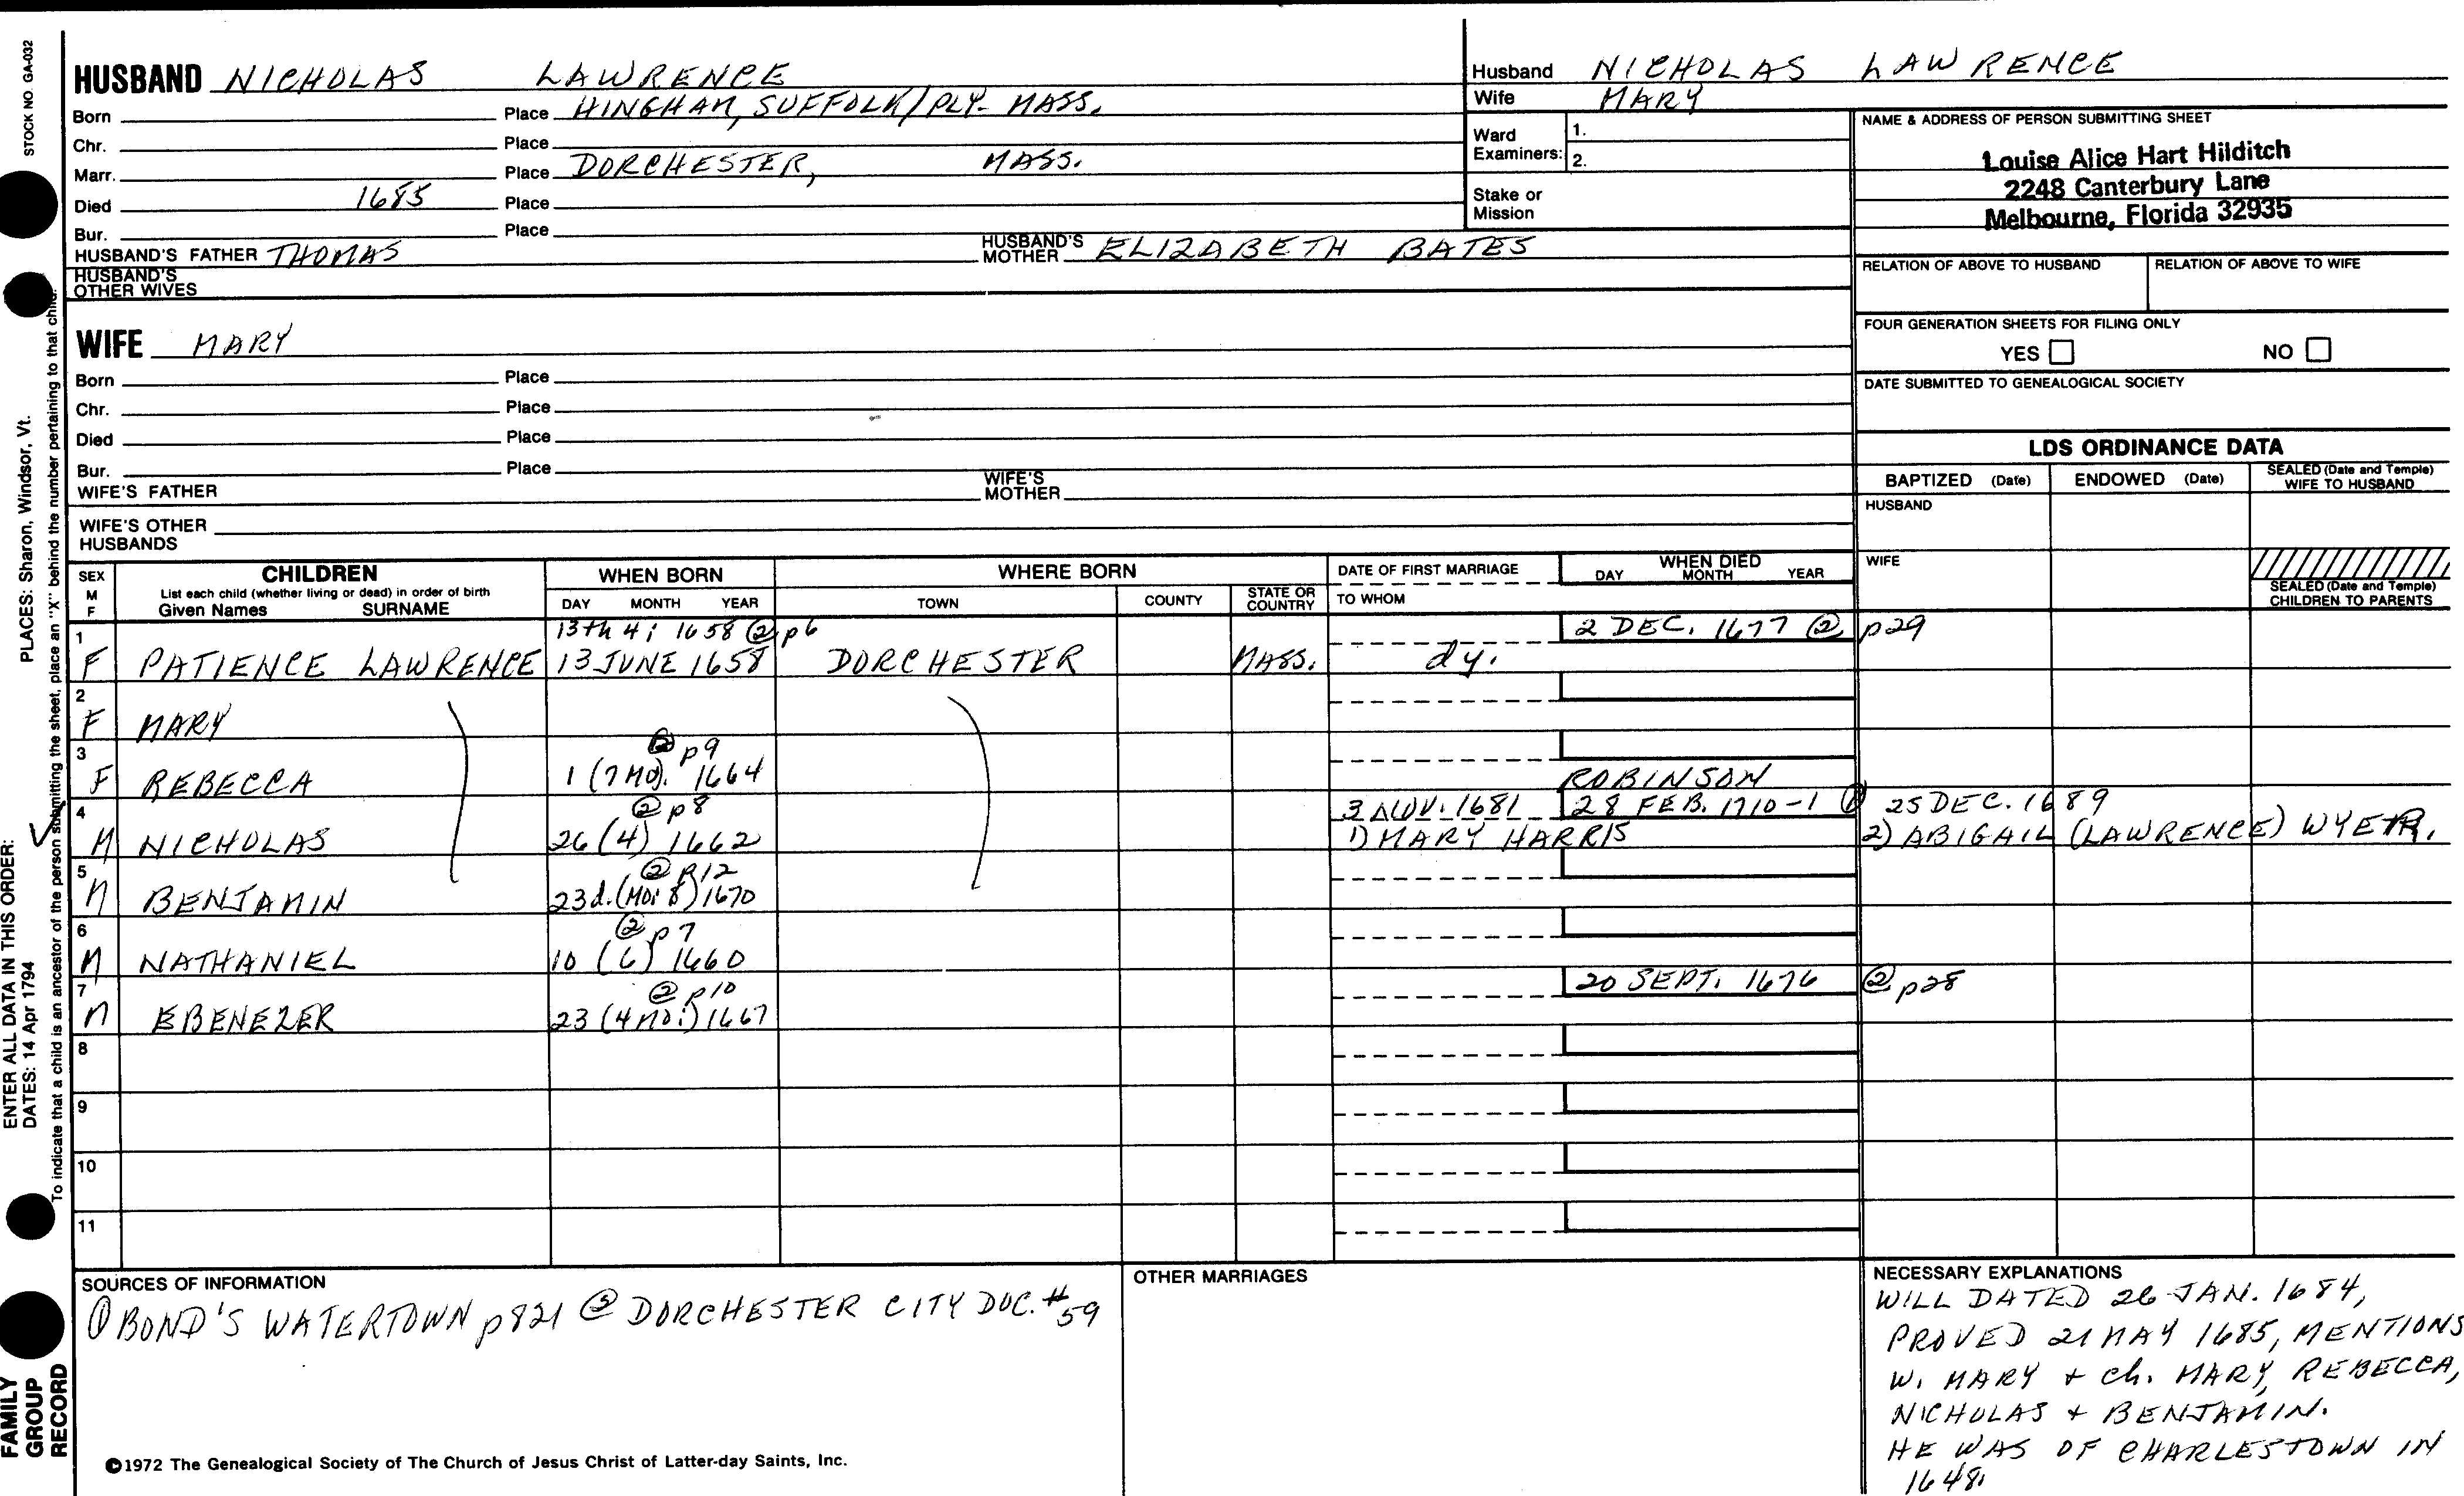 STOCK NO. GA-032
HUSBAND NICHOLAS LAWRENCE
Born Place HINGHAM, SUFFOLK/PLY- MASS.
Chr. Place
Marr. Place DORCHESTER, MASS.
Died 1685 Place
Bur. Place
HUSBAND'S FATHER THOMAS HUSBAND'S MOTHER ELIZABETH BATES
HUSBAND'S OTHER WIVES
WIFE MARY
Born Place
Chr. Place
Died Place
Bur. Place
WIFE'S FATHER WIFE'S MOTHER
WIFE'S OTHER HUSBANDS
Husband NICHOLAS LAWRENCE
Wife MARY
Ward Examiners: 1.
2.
Stake or Mission
NAME & ADDRESS OF PERSON SUBMITTING SHEET
Louise Alice Hart Hilditch
2248 Canterbury Lane
Melbourne, Florida 32935
RELATION OF ABOVE TO HUSBAND RELATION OF ABOVE TO WIFE
FOUR GENERATION SHEETS FOR FILING ONLY
YES NO
DATE SUBMITTED TO GENEALOGICAL SOCIETY
LDS ORDINANCE DATA
BAPTIZED (Date) ENDOWED (Date) SEALED (Date and Temple) WIFE TO HUSBAND
HUSBAND
WIFE
SEALED (Date and Temple) CHILDREN TO PARENTS
SEX M F CHILDREN WHEN BORN WHERE BORN DATE OF FIRST MARRIAGE WHEN DIED
List each child (whether living or dead) in order of birth
Given Names SURNAME DAY MONTH YEAR TOWN COUNTY STATE OR COUNTRY TO WHOM DAY MONTH YEAR
1 13th 4; 1658 ② p6 2 DEC. 1677 ② p29
F PATIENCE LAWRENCE 13 JUNE 1658 DORCHESTER MASS. dy.
2
F MARY
3 ② p9
F REBECCA 1 (7 MO). 1664 ROBINSON
4 ② p8 3 NOV. 1681 28 FEB. 1710-1 25 DEC. 1689
M NICHOLAS 26 (4) 1662 1) MARY HARRIS 2) ABIGAIL (LAWRENCE) WYETR.
5 ② p12
M BENJAMIN 23d. (MO: 8) 1670
6 ② p7
M NATHANIEL 10 (6) 1660
7 ② p10 20 SEPT. 1676 ② p28
M EBENEZER 23 (4 MO:) 1667
8
9
10
11
SOURCES OF INFORMATION
① BOND'S WATERTOWN p821 ② DORCHESTER CITY DOC. #59
OTHER MARRIAGES
NECESSARY EXPLANATIONS
WILL DATED 26 JAN. 1684,
PROVED 21 MAY 1685, MENTIONS
W. MARY + ch. MARY, REBECCA,
NICHOLAS + BENJAMIN.
HE WAS OF CHARLESTOWN IN
1648.
©1972 The Genealogical Society of The Church of Jesus Christ of Latter-day Saints, Inc.
FAMILY GROUP RECORD
ENTER ALL DATA IN THIS ORDER:
DATES: 14 Apr 1794 PLACES: Sharon, Windsor, Vt.
To indicate that a child is an ancestor of the person submitting the sheet, place an "X" behind the number pertaining to that child.